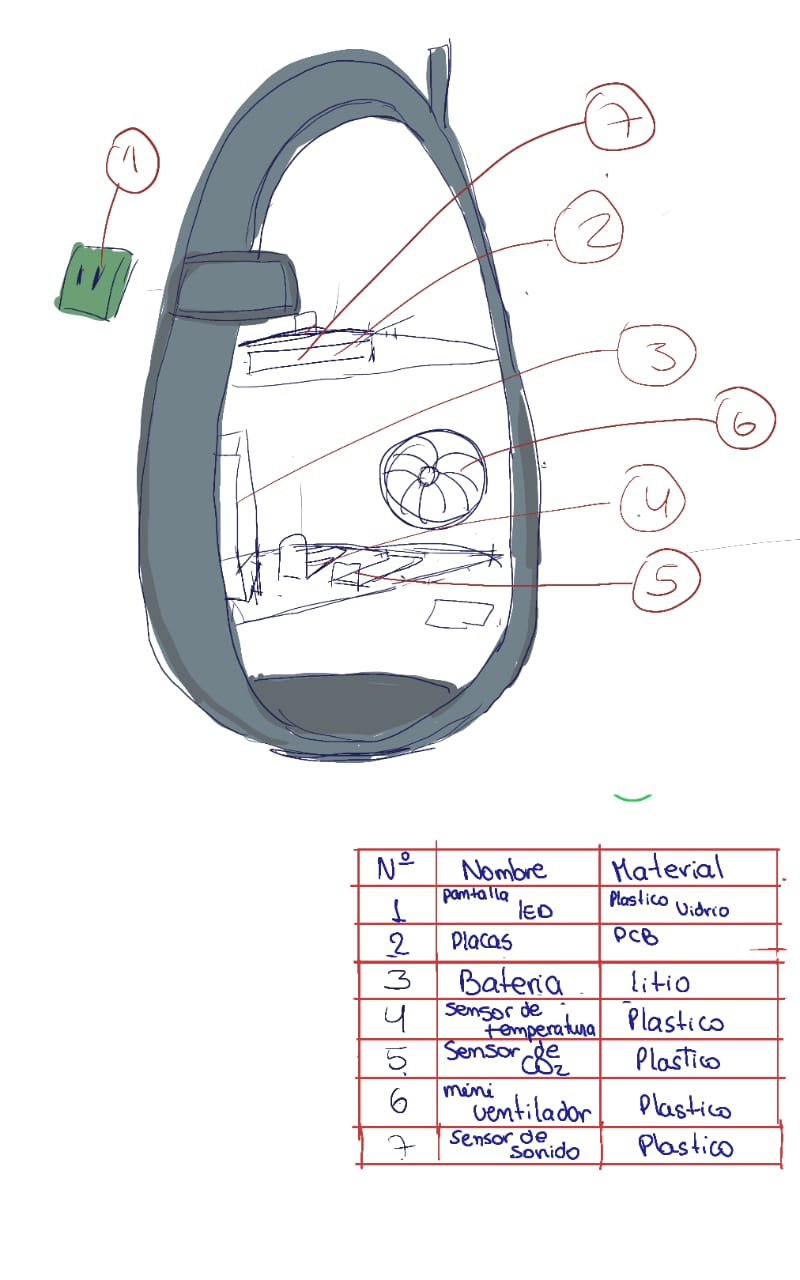 1
7
2
3
6
4
5
Nº Nombre Material
1 pantalla LED Plastico Vidrio
2 Placas PCB
3 Bateria litio
4 sensor de temperatura Plastico
5 Sensor de CO2 Plastico
6 mini ventilador Plastico
7 sensor de sonido Plastico